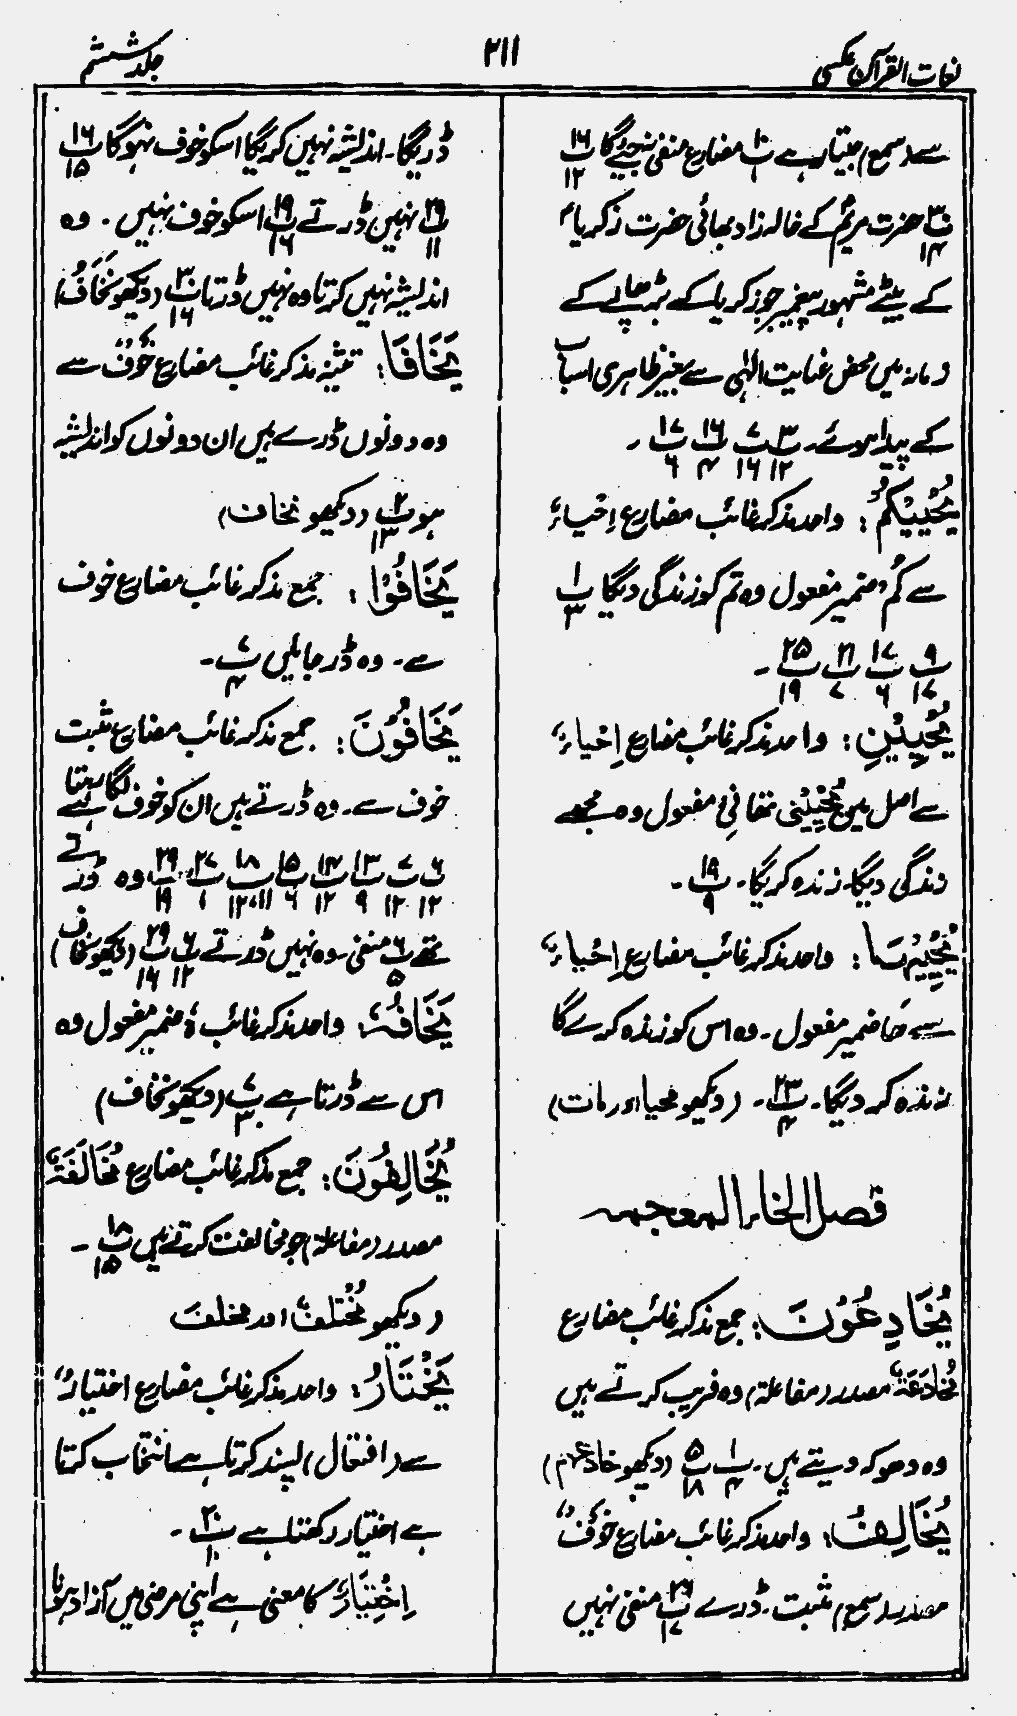 لغات القرآن عکسی
۲۱۱
جلد ششم
سے (سمع) جیتا رہے پ۱۰ مضارع منفی نہ جئے گا پ۱۶/۱۲
پ۳۰/۱۴ حضرت مریم کے خالہ زاد بھائی حضرت زکریا
کے بیٹے مشہور پیغمبر جو زکریا کے بڑھاپے کے
زمانہ میں محض عنایت الٰہی سے بغیر ظاہری اسباب
کے پیدا ہوئے۔ پ۳/۱۲ پ۷/۱۶ پ۱۶/۴ پ۱۷/۶ ۔
یُحْیِیْکُمْ: واحد مذکر غائب مضارع اِحْیَاءٌ
سے کُمْ ضمیر مفعول وہ تم کو زندگی دیگا پ۱/۳
پ۹/۱۷ پ۱۷/۶ پ۲۱/۷ پ۲۵/۱۹ ۔
یُحْیِیْنِ: واحد مذکر غائب مضارع اِحْیَاءٌ
سے اصل میں یُحْیِیْنِیْ تھا نِیْ مفعول وہ مجھے
زندگی دیگا۔ زندہ کریگا۔ پ۱۹/۹ ۔
یُحْیِیْہَا: واحد مذکر غائب مضارع اِحْیَاءٌ
سے ھَا ضمیر مفعول۔ وہ اس کو زندہ کرے گا
زندہ کر دیگا۔ پ۲۳/۴ ۔ (دیکھو محیا اور مات)
فصل الخاء المعجمہ
یُخَادِعُوْنَ: جمع مذکر غائب مضارع
مُخَادَعَۃٌ مصدر (مفاعلۃ) وہ فریب کرتے ہیں
وہ دھوکہ دیتے ہیں۔ پ۱/۴ پ۵/۱۸ (دیکھو خادعہم)
یُخَالِفُ: واحد مذکر غائب مضارع خَوْفٌ
مصدر (سمع) مثبت۔ ڈرے پ۲۶/۱۷ منفی نہیں
ڈریگا۔ اندیشہ نہیں کریگا اسکو خوف نہو گا پ۱۶/۱۵
پ۲۹/۱۱ نہیں ڈرتے پ۱۹/۱۶ اسکو خوف نہیں۔ وہ
اندیشہ نہیں کرتا وہ نہیں ڈرتا پ۳۰/۱۶ (دیکھو نَخَافُ)
یَخَافَا: تثنیہ مذکر غائب مضارع خَوْفٌ سے
وہ دونوں ڈرے ہیں ان دونوں کو اندیشہ
ہو پ۲/۱۳ (دیکھو نخاف)
یَخَافُوْا: جمع مذکر غائب مضارع خوف
سے۔ وہ ڈر جائیں پ۷/۴ ۔
یَخَافُوْنَ: جمع مذکر غائب مضارع مثبت
خوف سے۔ وہ ڈرتے ہیں ان کو خوف لگا رہتا ہے
پ۶/۱۲ پ۷/۱۲ پ۱۳/۹ پ۱۴/۱۲ پ۱۵/۶ پ۱۸/۱۱،۱۲ پ۲۷/۱ پ۲۹/۱۹ وہ ڈرتے
تھے پ۶/۵ منفی۔ وہ نہیں ڈرتے پ۶/۱۲ پ۲۹/۱۶ (دیکھو نخاف)
یَخَافُہٗ: واحد مذکر غائب ہٗ ضمیر مفعول وہ
اس سے ڈرتا ہے پ۷/۳ (دیکھو نخاف)
یُخَالِفُوْنَ: جمع مذکر غائب مضارع مُخَالَفَۃٌ
مصدر (مفاعلۃ) جو مخالفت کرتے ہیں پ۱۸/۱۵ ۔
(دیکھو مُخْتَلِفٌ اور مخلف
یَخْتَارُ: واحد مذکر غائب مضارع اختیارٌ
سے (افتعال) پسند کرتا ہے انتخاب کرتا
ہے اختیار رکھتا ہے پ۲۰/۱۰ ۔
اِخْتِیَارٌ کا معنی ہے اپنی مرضی میں آزاد ہونا